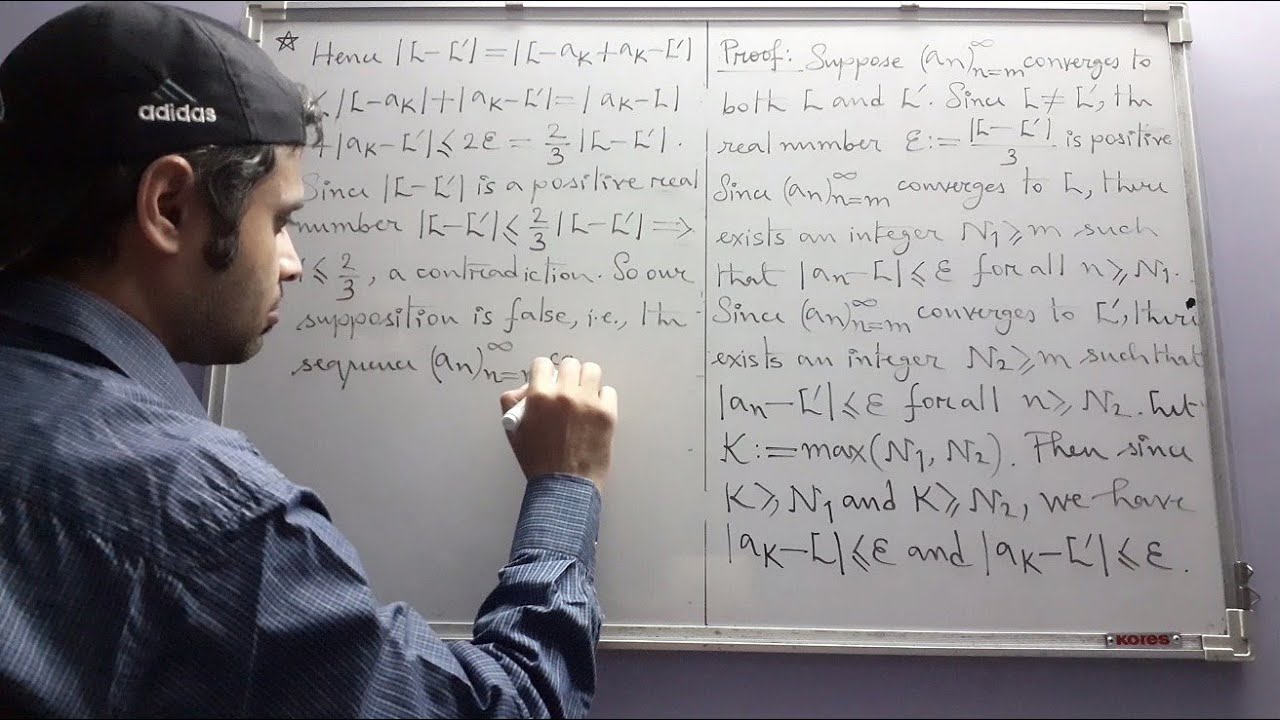 ☆ Hence |L-L'|=|L-a_K+a_K-L'|
≤ |L-a_K|+|a_K-L'|=|a_K-L|
+|a_K-L'|≤2ε = 2/3 |L-L'|.
Since |L-L'| is a positive real
number |L-L'|≤ 2/3 |L-L'| ⇒
1≤ 2/3, a contradiction. So our
supposition is false, i.e., the
sequence (a_n)_{n=m}^∞
Proof: Suppose (a_n)_{n=m}^∞ converges to
both L and L'. Since L≠L', the
real number ε:= |L-L'|/3 is positive
Since (a_n)_{n=m}^∞ converges to L, there
exists an integer N_1≥m such
that |a_n-L|≤ε for all n≥N_1.
Since (a_n)_{n=m}^∞ converges to L', there
exists an integer N_2≥m such that
|a_n-L'|≤ε for all n≥N_2. Let
K:=max(N_1, N_2). Then since
K≥N_1 and K≥N_2, we have
|a_K-L|≤ε and |a_K-L'|≤ε.
adidas
KORES